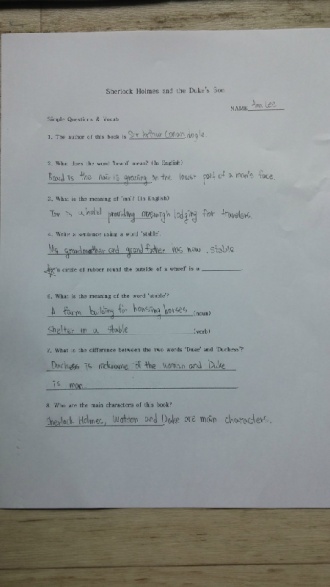 Sherlock Holmes and the Duke's Son
NAME
Simple Question & Vocab
1. The author of this book is Sir Arthur Conan doyle
2. What does the word 'beard' mean? (In English)
Beard is the hair is growing the lower part of a men's face.
3. What is the meaning of 'inn'? (In English)
Inn is a hotel providing lodging for travelers.
4. Write a sentence using a word 'stable'.
My grandmother and grandfather has now stable
5. 's circle of rubber round the outside of a wheel is a
6. What is the meaning of the word 'stable'?
A farm building for housing horses (noun)
Shelter in a stable (verb)
7. What is the difference between the two words 'Duke' and 'Duchess'?
Duchess is nickname of the woman and Duke
is man
8. Who are the main characters of this book?
Sherlock Holmes, Watson and Duke are main characters.